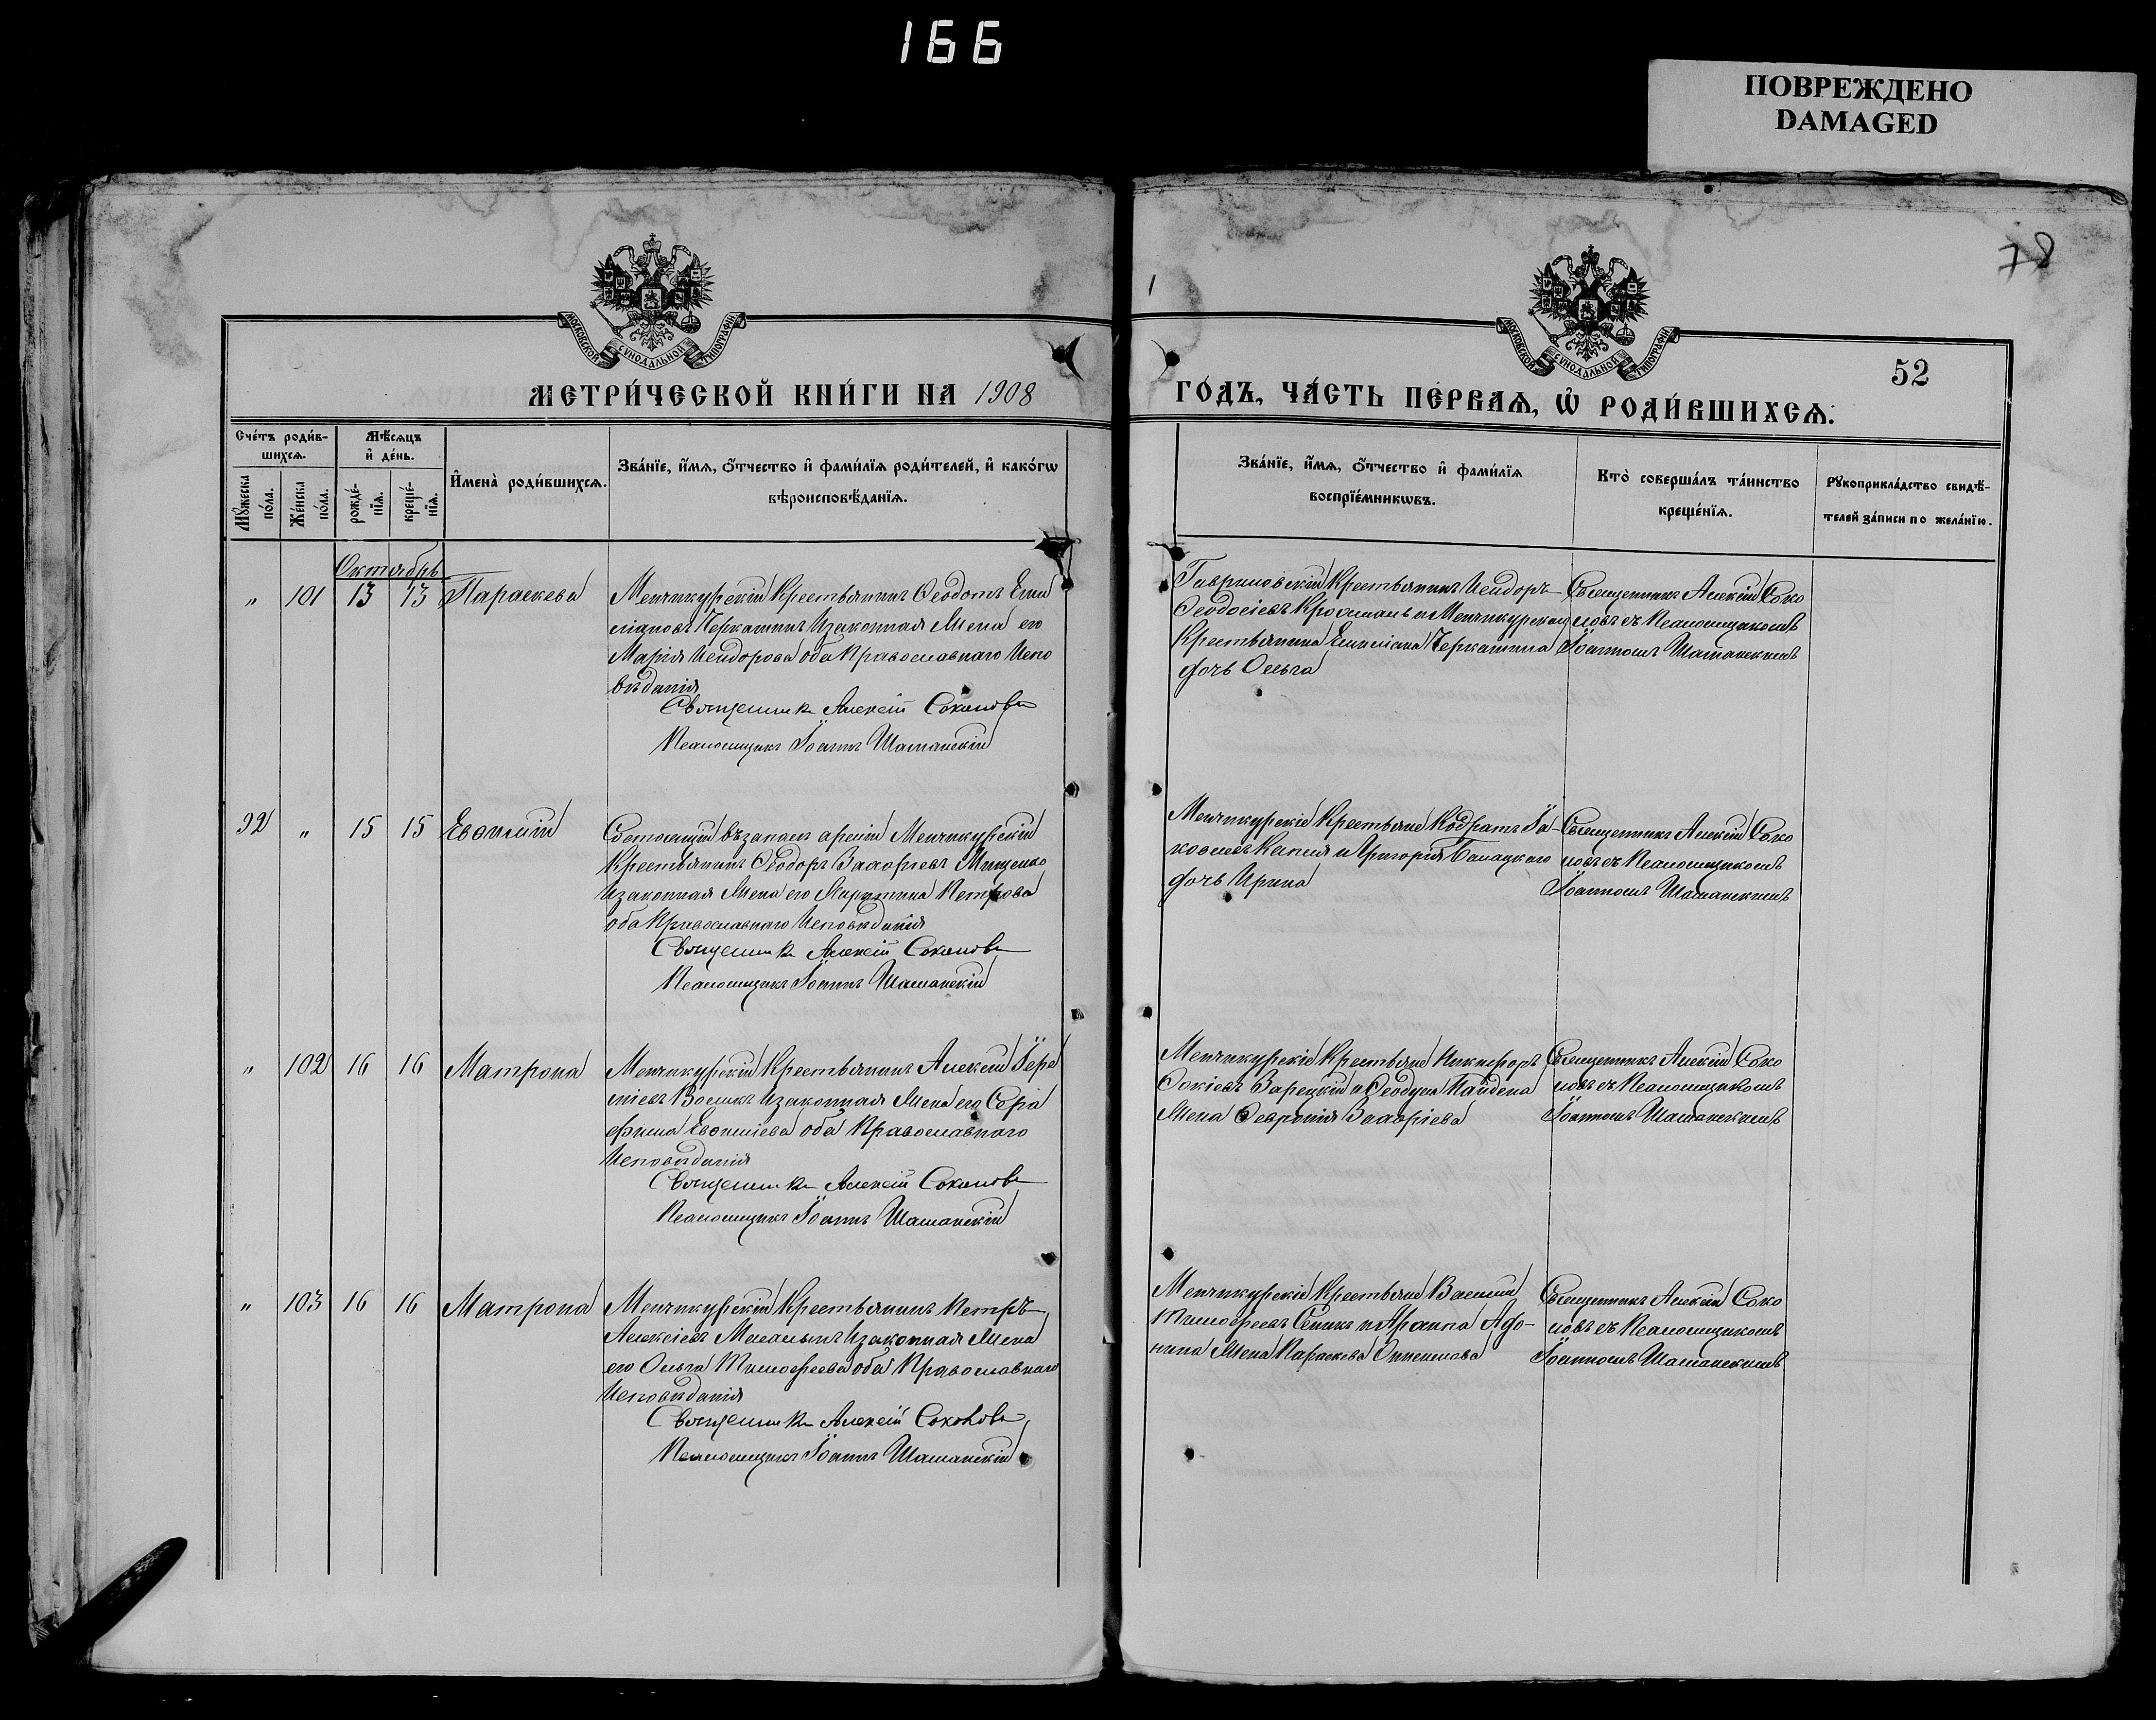 166
ПОВРЕЖДЕНО
DAMAGED
78
МОСКОВСКОЙ СѴНОДАЛЬНОЙ ТИПОГРАФІИ
МОСКОВСКОЙ СѴНОДАЛЬНОЙ ТИПОГРАФІИ
52
МЕТРИ́ЧЕСКОЙ КНИ́ГИ НА 1908
ГО́ДЪ, ЧА́СТЬ ПЕ́РВАѦ, Ѡ҆ РОДИ́ВШИХСѦ.
Сче́тъ роди́в-
шихсѧ.
Мѣ́сѧцъ
и҆ де́нь.
Мꙋ́жеска
по́ла.
Же́нска
по́ла.
рожде́-
нїѧ.
креще́-
нїѧ.
И҆мена̀ роди́вшихсѧ.
Зва́нїе, и҆́мѧ, ѻ҆́тчество и҆ фами́лїѧ роди́телей, и҆ како́гѡ
вѣроисповѣ́данїѧ.
Зва́нїе, и҆́мѧ, ѻ҆́тчество и҆ фами́лїѧ
воспрїе́мникѡвъ.
Кто̀ соверша́лъ та́инство
креще́нїѧ.
Рꙋкоприкла́дство свидѣ́-
телей за́писи по жела́нїю.
Октябрь
" 101 13 13 Параскева
Менчикурскій Крестьянинъ Ѳеодотъ Еми
ліановъ Черкашинъ и законная жена его
Марія Исидорова оба Православнаго Испо
вѣданія
Священникъ Алексій Соколовъ
Псаломщикъ Іоаннъ Шаманскій
Гавриловскій Крестьянинъ Исидоръ
Ѳеодосіевъ и Менчикурскаго
Крестьянина Емиліана Черкашина
дочь Ольга
Священникъ Алексій Соко
ловъ съ Псаломщикомъ
Іоанномъ Шаманскимъ
92 " 15 15 Евѳимій
Состоящій въ запасѣ арміи Менчикурскій
Крестьянинъ Ѳеодоръ Захаріевъ Мищенко
и законная жена его Маритана Петрова
оба Православнаго Исповѣданія
Священникъ Алексій Соколовъ
Псаломщикъ Іоаннъ Шаманскій
Менчикурскіе Крестьяне Кодратъ Іа-
ковлевъ и Григорія
дочь Ирина
Священникъ Алексій Соко
ловъ съ Псаломщикомъ
Іоанномъ Шаманскимъ
" 102 16 16 Матрона
Менчикурскій Крестьянинъ Алексій Іере
міевъ и законная жена его Сера
фима Евѳиміева оба Православнаго
Исповѣданія
Священникъ Алексій Соколовъ
Псаломщикъ Іоаннъ Шаманскій
Менчикурскіе Крестьяне Никифоръ
Зарецкій и Ѳеодула Найдена
жена Февронія Захаріева
Священникъ Алексій Соко
ловъ съ Псаломщикомъ
Іоанномъ Шаманскимъ
" 103 16 16 Матрона
Менчикурскій Крестьянинъ Петръ
Алексіевъ и законная жена
его Ольга Тимофеева оба Православнаго
Исповѣданія
Священникъ Алексій Соколовъ
Псаломщикъ Іоаннъ Шаманскій
Менчикурскіе Крестьяне Василій
Тимофеевъ Сѣникъ и
жена Параскева
Священникъ Алексій Соко
ловъ съ Псаломщикомъ
Іоанномъ Шаманскимъ